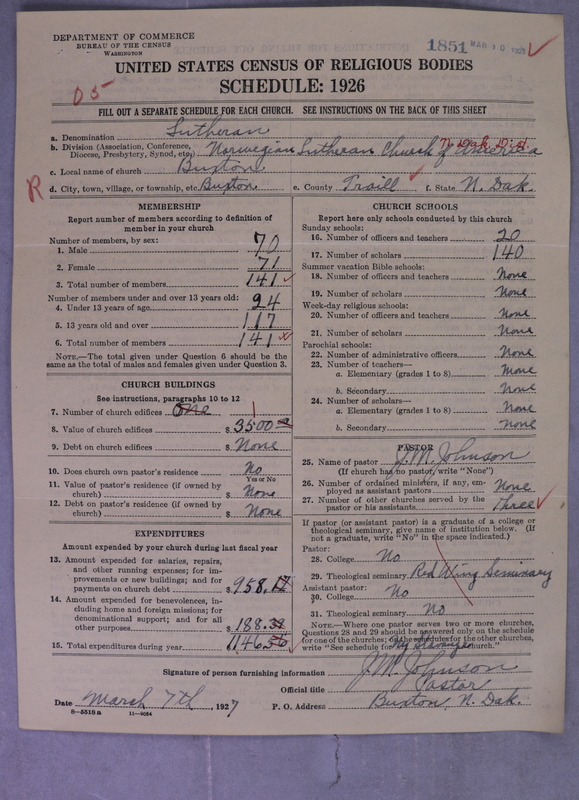 DEPARTMENT OF COMMERCE
BUREAU OF THE CENSUS
WASHINGTON
1851 MAR 10 1927
UNITED STATES CENSUS OF RELIGIOUS BODIES
SCHEDULE: 1926
D5
FILL OUT A SEPARATE SCHEDULE FOR EACH CHURCH. SEE INSTRUCTIONS ON THE BACK OF THIS SHEET
a. Denomination Lutheran
N. Dak. Dist.
b. Division (Association, Conference, Diocese, Presbytery, Synod, etc.) Norwegian Lutheran Church of America
c. Local name of church Buxton
R
d. City, town, village, or township, etc. Buxton e. County Traill f. State N. Dak.
MEMBERSHIP
Report number of members according to definition of
member in your church
Number of members, by sex:
1. Male 70
2. Female 71
3. Total number of members 141
Number of members under and over 13 years old:
4. Under 13 years of age 24
5. 13 years old and over 117
6. Total number of members 141
NOTE.—The total given under Question 6 should be the
same as the total of males and females given under Question 3.
CHURCH BUILDINGS
See instructions, paragraphs 10 to 12
7. Number of church edifices One 1
8. Value of church edifices $ 3500
9. Debt on church edifices $ None
10. Does church own pastor's residence No
Yes or No
11. Value of pastor's residence (if owned by
church) $ None
12. Debt on pastor's residence (if owned by
church) $ None
EXPENDITURES
Amount expended by your church during last fiscal year
13. Amount expended for salaries, repairs,
and other running expenses; for im-
provements or new buildings; and for
payments on church debt $ 958.
14. Amount expended for benevolences, in-
cluding home and foreign missions; for
denominational support; and for all
other purposes 188.
15. Total expenditures during year 1146
CHURCH SCHOOLS
Report here only schools conducted by this church
Sunday schools:
16. Number of officers and teachers 20
17. Number of scholars 140
Summer vacation Bible schools:
18. Number of officers and teachers None
19. Number of scholars None
Week-day religious schools:
20. Number of officers and teachers None
21. Number of scholars None
Parochial schools:
22. Number of administrative officers None
23. Number of teachers—
a. Elementary (grades 1 to 8) None
b. Secondary None
24. Number of scholars—
a. Elementary (grades 1 to 8) None
b. Secondary None
PASTOR
25. Name of pastor J. M. Johnson
(If church has no pastor, write "None")
26. Number of ordained ministers, if any, em-
ployed as assistant pastors None
27. Number of other churches served by the
pastor or his assistants Three
If pastor (or assistant pastor) is a graduate of a college or
theological seminary, give name of institution below. (If
not a graduate, write "No" in the space indicated.)
Pastor:
28. College No
29. Theological seminary Red Wing Seminary
Assistant pastor:
30. College No
31. Theological seminary No
NOTE.—Where one pastor serves two or more churches,
Questions 28 and 29 should be answered only on the schedule
for one of the churches; on the schedules for the other churches,
write "See schedule for church."
Signature of person furnishing information J. M. Johnson
Official title Pastor
Date March 7th, 1927 P. O. Address Buxton, N. Dak.
8—5518a 11—9084